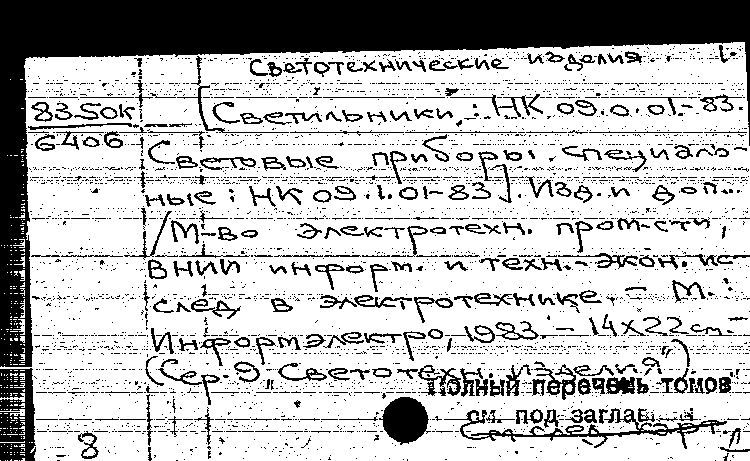 Светотехнические изделия..
83-5ок
6406
[Светильники.: НК 09.0.01-83.
Световые приборы специаль-
ные: НК 09.1.01-83]. Изд. и доп...
/М-во электротехн. пром-сти,
ВНИИ информ. и техн.-экон. ис-
след. в электротехнике. - М.:
Информэлектро, 1983. - 14х22 см. -
(Сер. 9 "Светотехн. изделия").
Полный перечень томов
см. под заглав
См след карт.
8